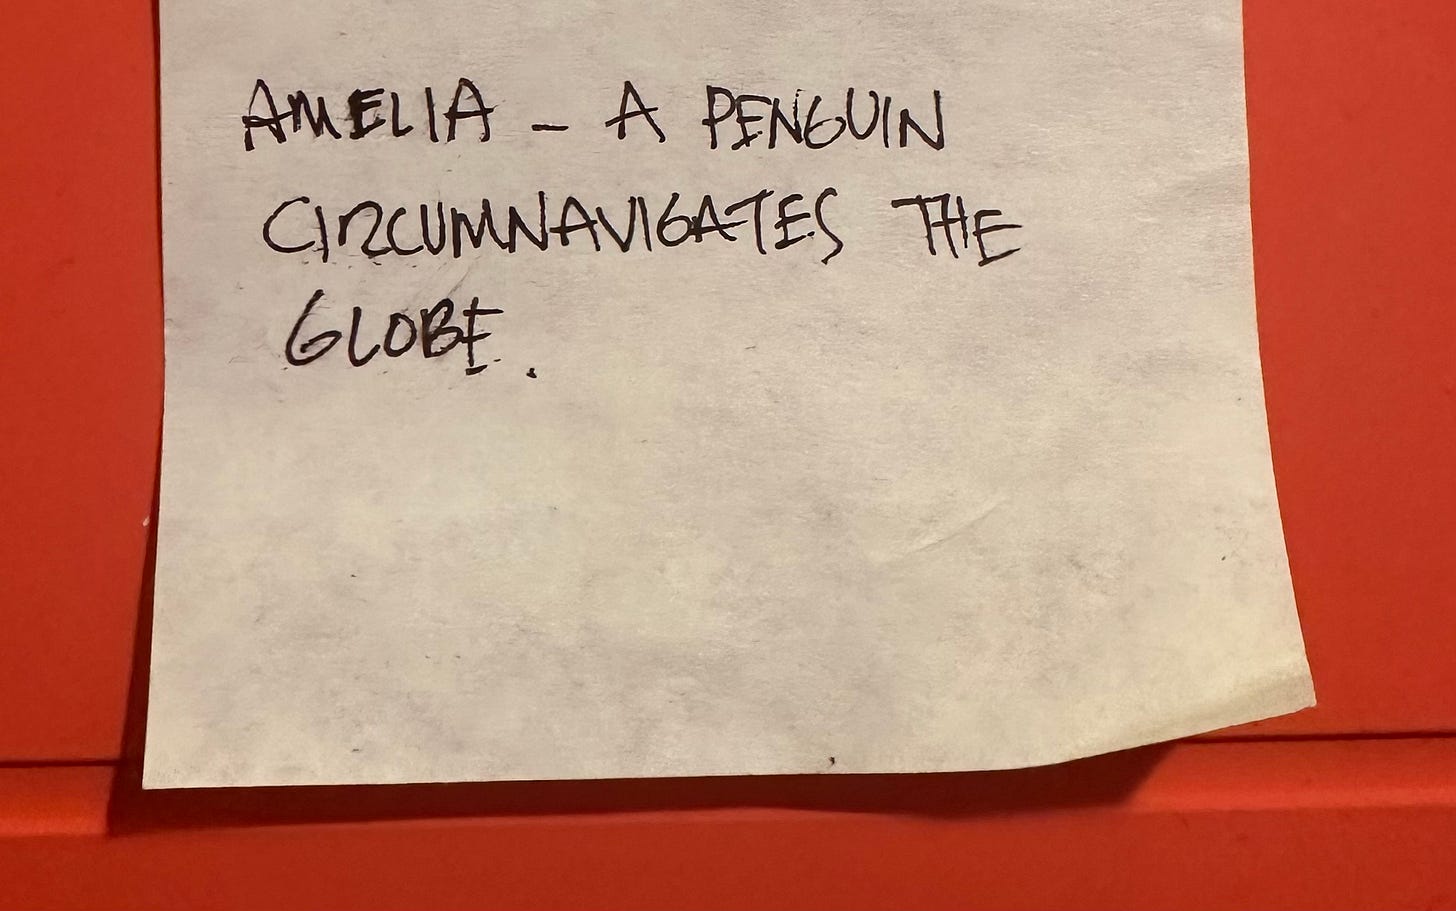 AMELIA - A PENGUIN
CIRCUMNAVIGATES THE
GLOBE.